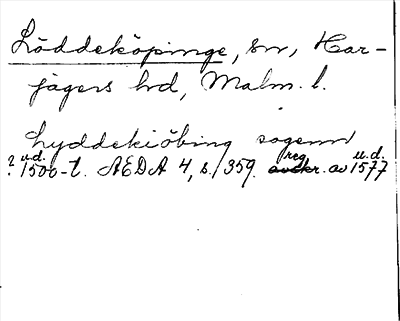 Löddeköpinge, sn, Har-
jagers hd, Malm. l.
Lyddekiöbing sogenn
? u.d. 1500-t. AEDA 4, s. 359. reg. av u.d. 1577